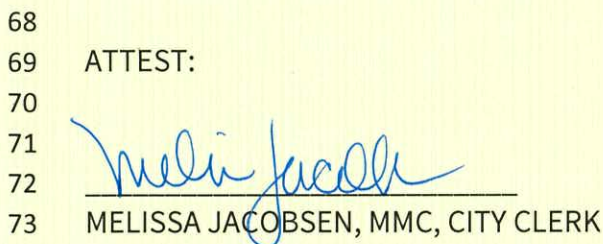 68
69 ATTEST:
70
71
72 Melissa Jacobsen
73 MELISSA JACOBSEN, MMC, CITY CLERK